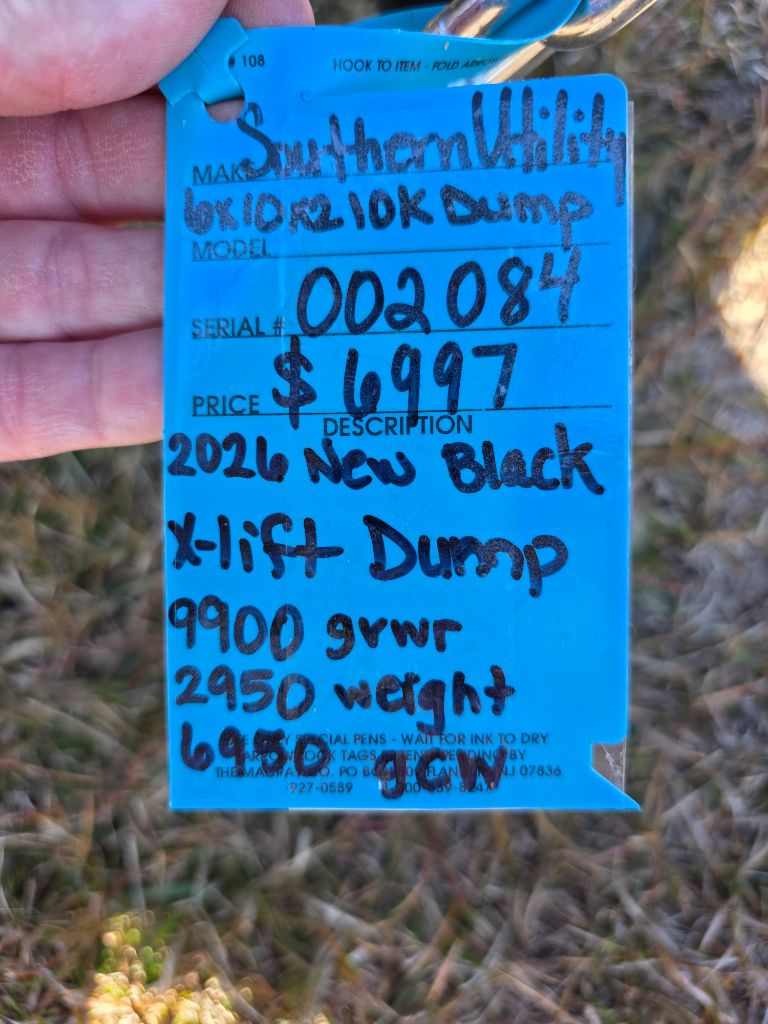 # 108 HOOK TO ITEM - FOLD
MAKE Southern Utility
6x10x2 10K Dump
MODEL
SERIAL # 002084
PRICE $6997
DESCRIPTION
2026 New Black
X-lift Dump
9900 gvwr
2950 weight
6950 gcw
SPECIAL PENS - WAIT FOR INK TO DRY
TAGS BY
THE MAGRAY CO. PO BOX NJ 07836
927-0589